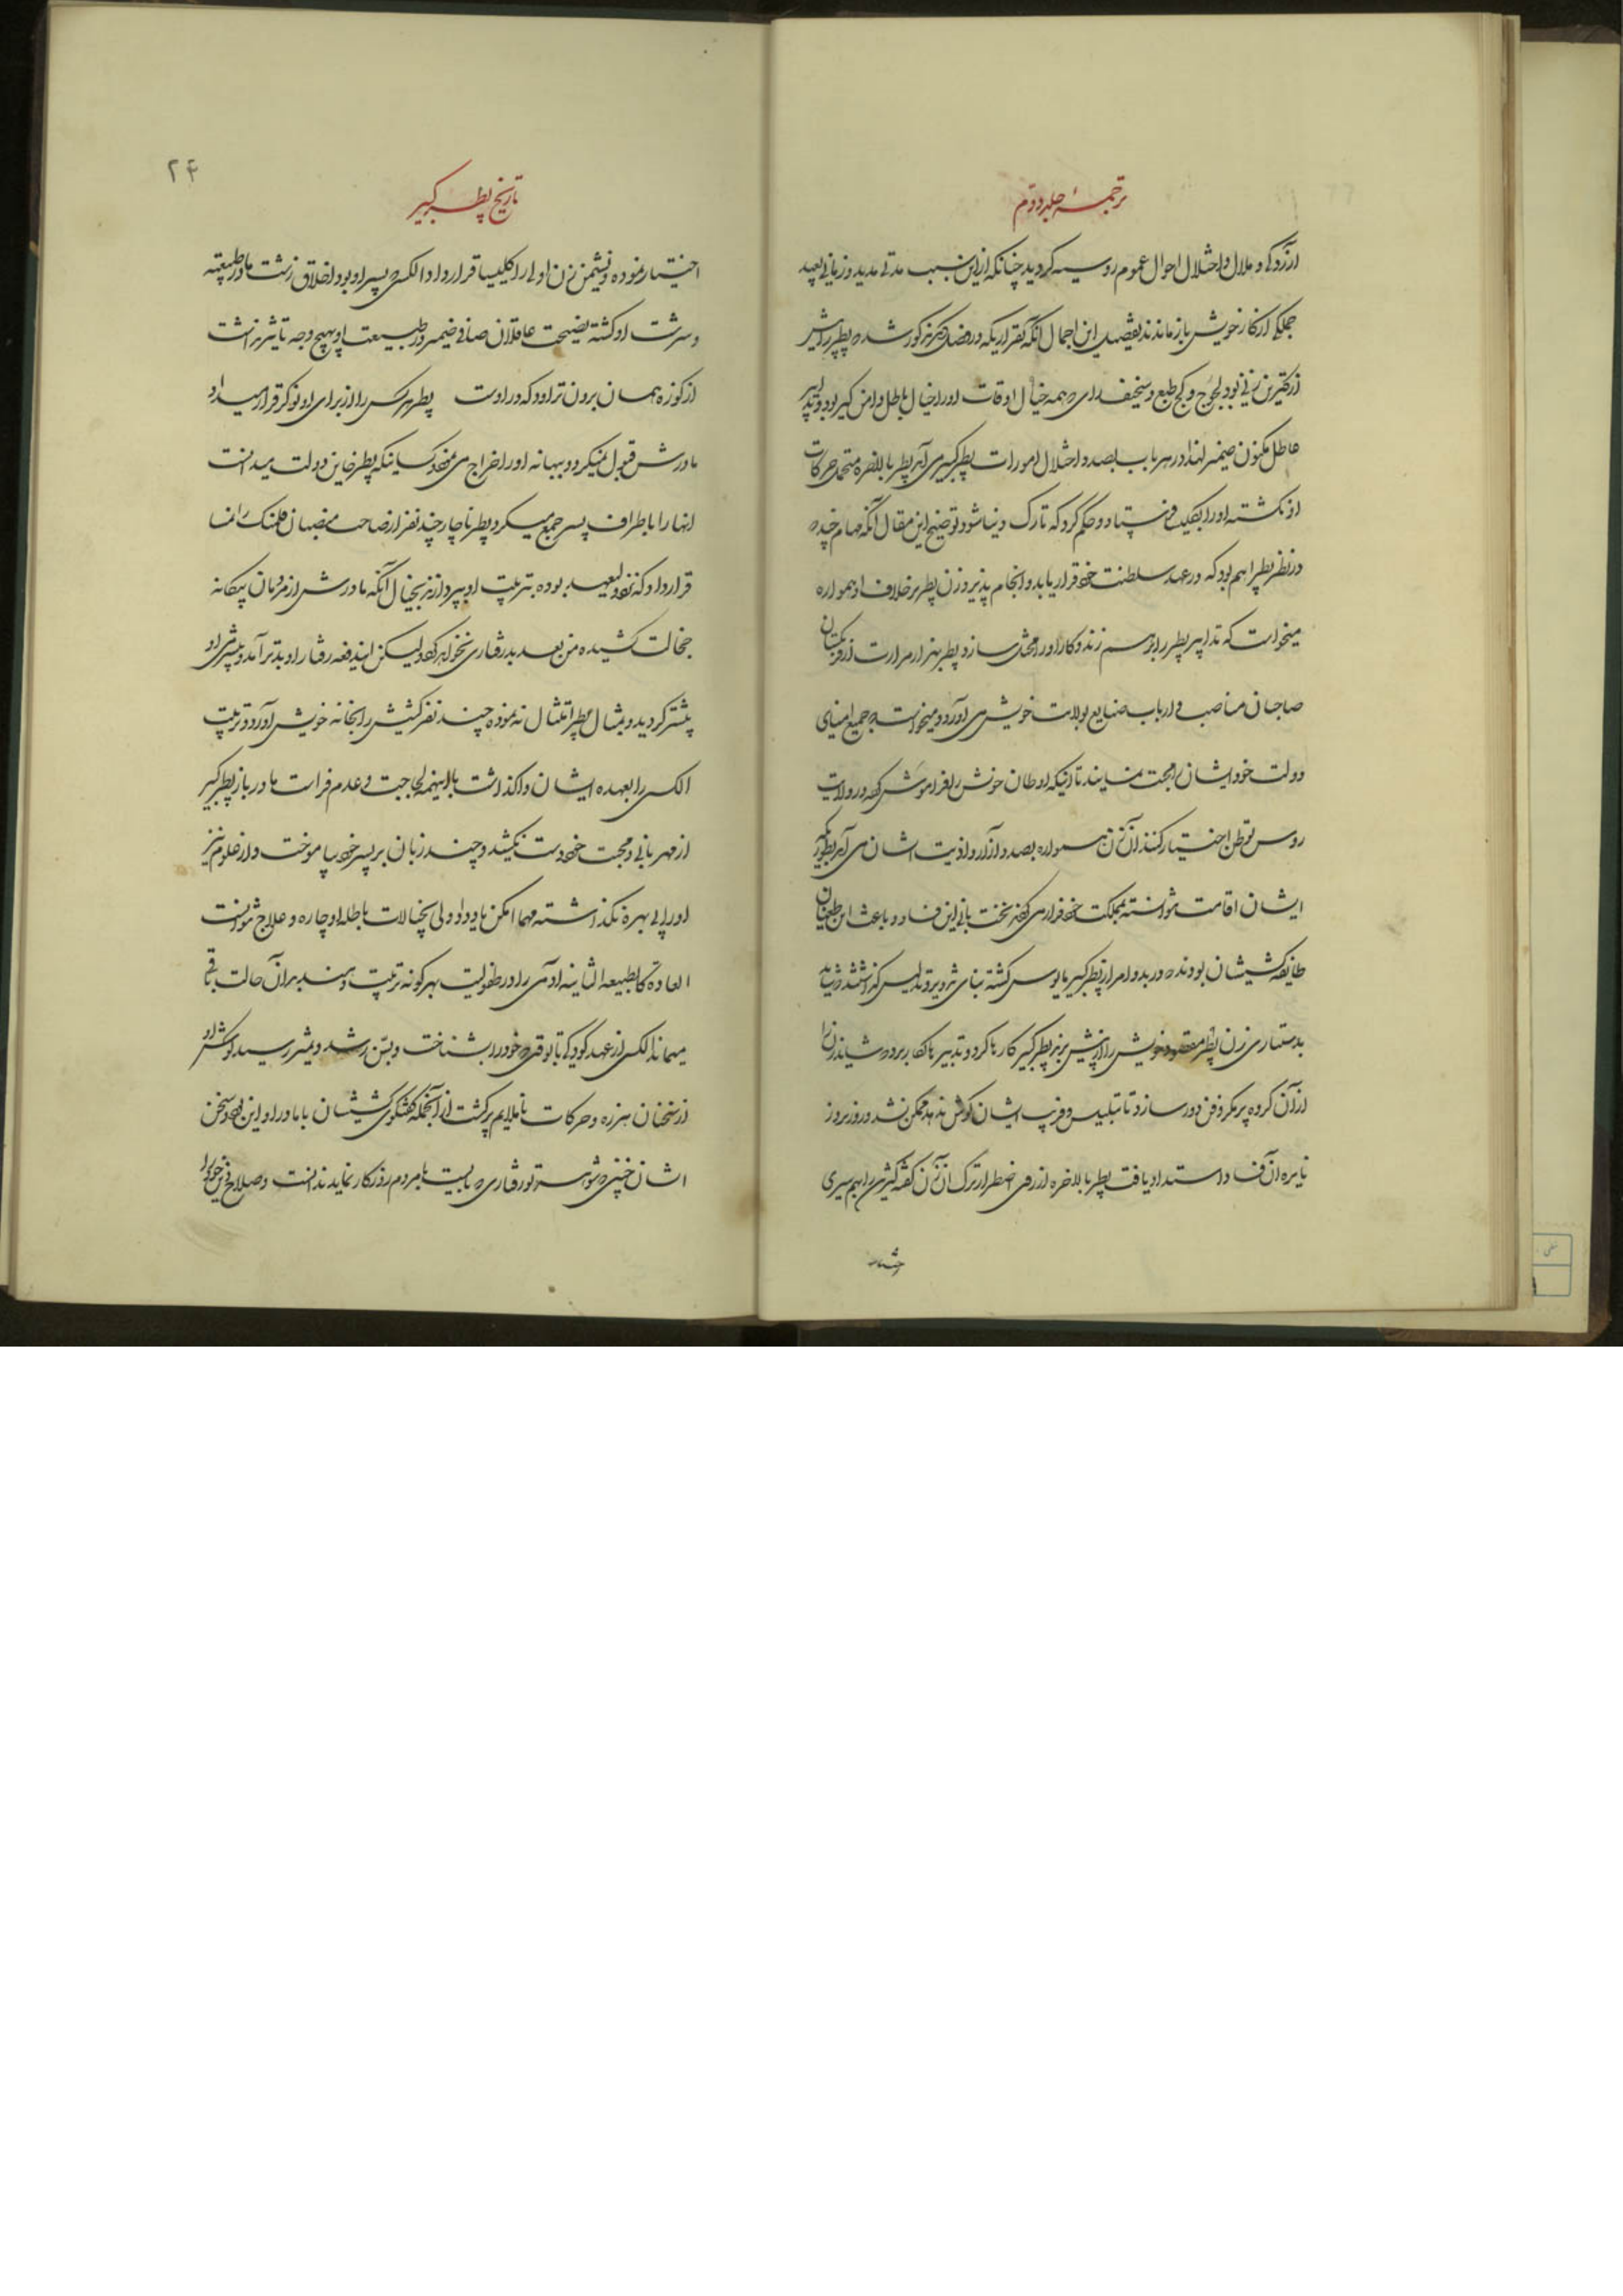 ترجمهٔ جلد دوم
ازردکی و ملال و اختلال احوال عموم روسیه کردید چنانکه ازین سبب مدتی مدید و زمانی بعید
جملکی از کار خویش باز ماندند تفصیل این اجمال آنکه بقراریکه در مذکور شد پطر را
زنی بود لجوج و کج طبع و سخیف رای همه خیال اوقات او را خیال باطل دامن کیر بود و تدابیر
عاطل مکنون ضمیر لهذا در هر باب بصدد اختلال امورات پطر کبیر می آمد پطر بالاخره متحمل حرکات
او نکشته او را بکلیسا فرستاد و حکم کرد که تارک دنیا شود توضیح این مقال آنکه مهام چند
در نظر پطر اهم بود که در عهد سلطنت خود قرار یابد و انجام پذیرد زن پطر برخلاف او همواره
میخواست که تدابیر پطر را برهم زند و کار او را مختل سازد پطر بهزار مرارت از فرنکستان
صاحبان مناصب و ارباب صنایع بولایت خویش می آورد و میخواست جمیع امنای
دولت خود ایشان محبت نمایند تا اینکه اوطان خویش را فراموش کرده در ولایت
روس توطن اختیار کنند آن زن همواره بصدد آزار و اذیت ایشان می آمد بطوریکه
ایشان اقامت نتوانسته بمملکت خود فرار می کردند نخست بانی این فساد و باعث این طغیان
طایفه کشیشان بودند در بدو امر از پطر کبیر مایوس کشته بنای تزویر و تدلیس گذاشتند و
بدستیاری زن پطر مقصود خویش را از پیش برند پطر کبیر کارها کرد و تدبیر بکار برد شاید زن را
از آن کروه پر مکر و فن دور سازد تا بتلبیس و فریب ایشان کوش ندهد ممکن نشد و روز بروز
نایره آن فساد اشتداد یافت پطر بالاخره از روی اضطرار ترک آن زن گفته
تاریخ پطر کبیر
۲۴
اختیار نموده و نشیمن زن اولی را کلیسیا قرار داد الکسی پسر او بود اخلاق زشت مادر طبیعت
و سرشت او کشته نصیحت عاقلان صافی ضمیر در طبیعت او بهیچ وجه تاثیر نداشت
از کوزه همان برون تراود که در اوست پطر هر کس را از برای او نوکر قرار میداد
مادرش قبول نمیکرد و ببهانه او را اخراج می نمود و کسانیکه پطر خاین دولت میدانست
انها را باطراف پسر جمع میکرد پطر ناچار چند نفر از صاحب منصبان فلمنک را
قرار داد که نزد ولیعهد بوده بتربیت او پردازند بخیال آنکه مادرش از مردمان بیکانه
خجالت کشیده من بعد بدرفتاری نخواهد کرد لیکن ایندفعه رفتار او بدتر آمد و
بیشتر کردید و بمثال پطر امتثال ننموده چند نفر کشیش را بخانه خویش آورد و تربیت
الکسی را بعهده ایشان واکذاشت با اینهمه لجاجت و عدم فراست مادر باز پطر کبیر
از مهربانی و محبت خود دست نکشید و چند زبان بر پسر خود بیاموخت و از علوم نیز
او را بی بهره نکذاشته مهما امکن یاد داد ولی بخیالات باطله او چاره و علاج نتوانست
العادة کالطبیعه الثانیه ادمی را در طفولیت بهر کونه تربیت دهند بر آن حالت باقی
میماند الکسی از عهد کودکی تا بوقتی خود را بشناخت و بسن رشد و تمیز رسید کوش او
از سخنان هرزه و حرکات ناملایم پر کشت از آنجمله گفتکوی کشیشان با مادر او این بود و سخن
ایشان چنین شوهر تو رفتاری بایست با مردم روزکار نماید ندانست و صلاح